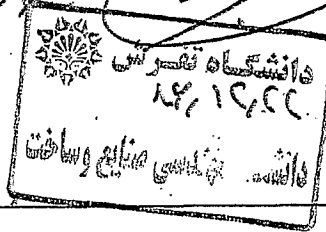 دانشگاه تفرش
۸۴,۱۲,۲۲
مهندسی صنایع وساخت